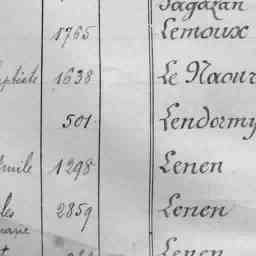 Sagazan
1765 Lemoux
1638 Le Naour
501 Lendormy
1298 Lenen
2859 Lenen
Lenen